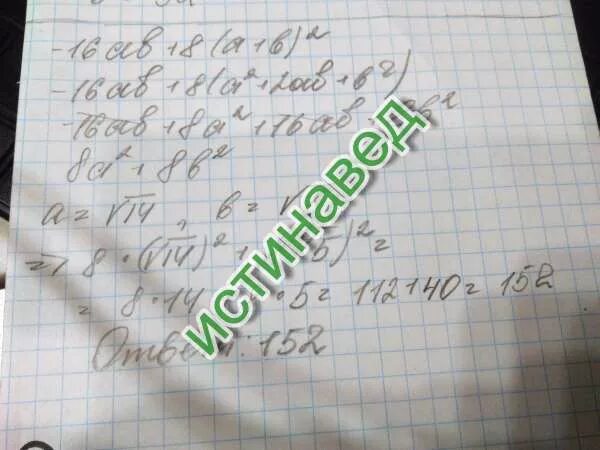 -16ab+8(a+b)²
-16ab+8(a²+2ab+b²)
-16ab+8a²+16ab b²
8a²+8b²
a=√14, b=√
=> 8·(√14)²+ 5)²=
= 8·14 ·5= 112+40= 152
Ответ: 152
истинавед